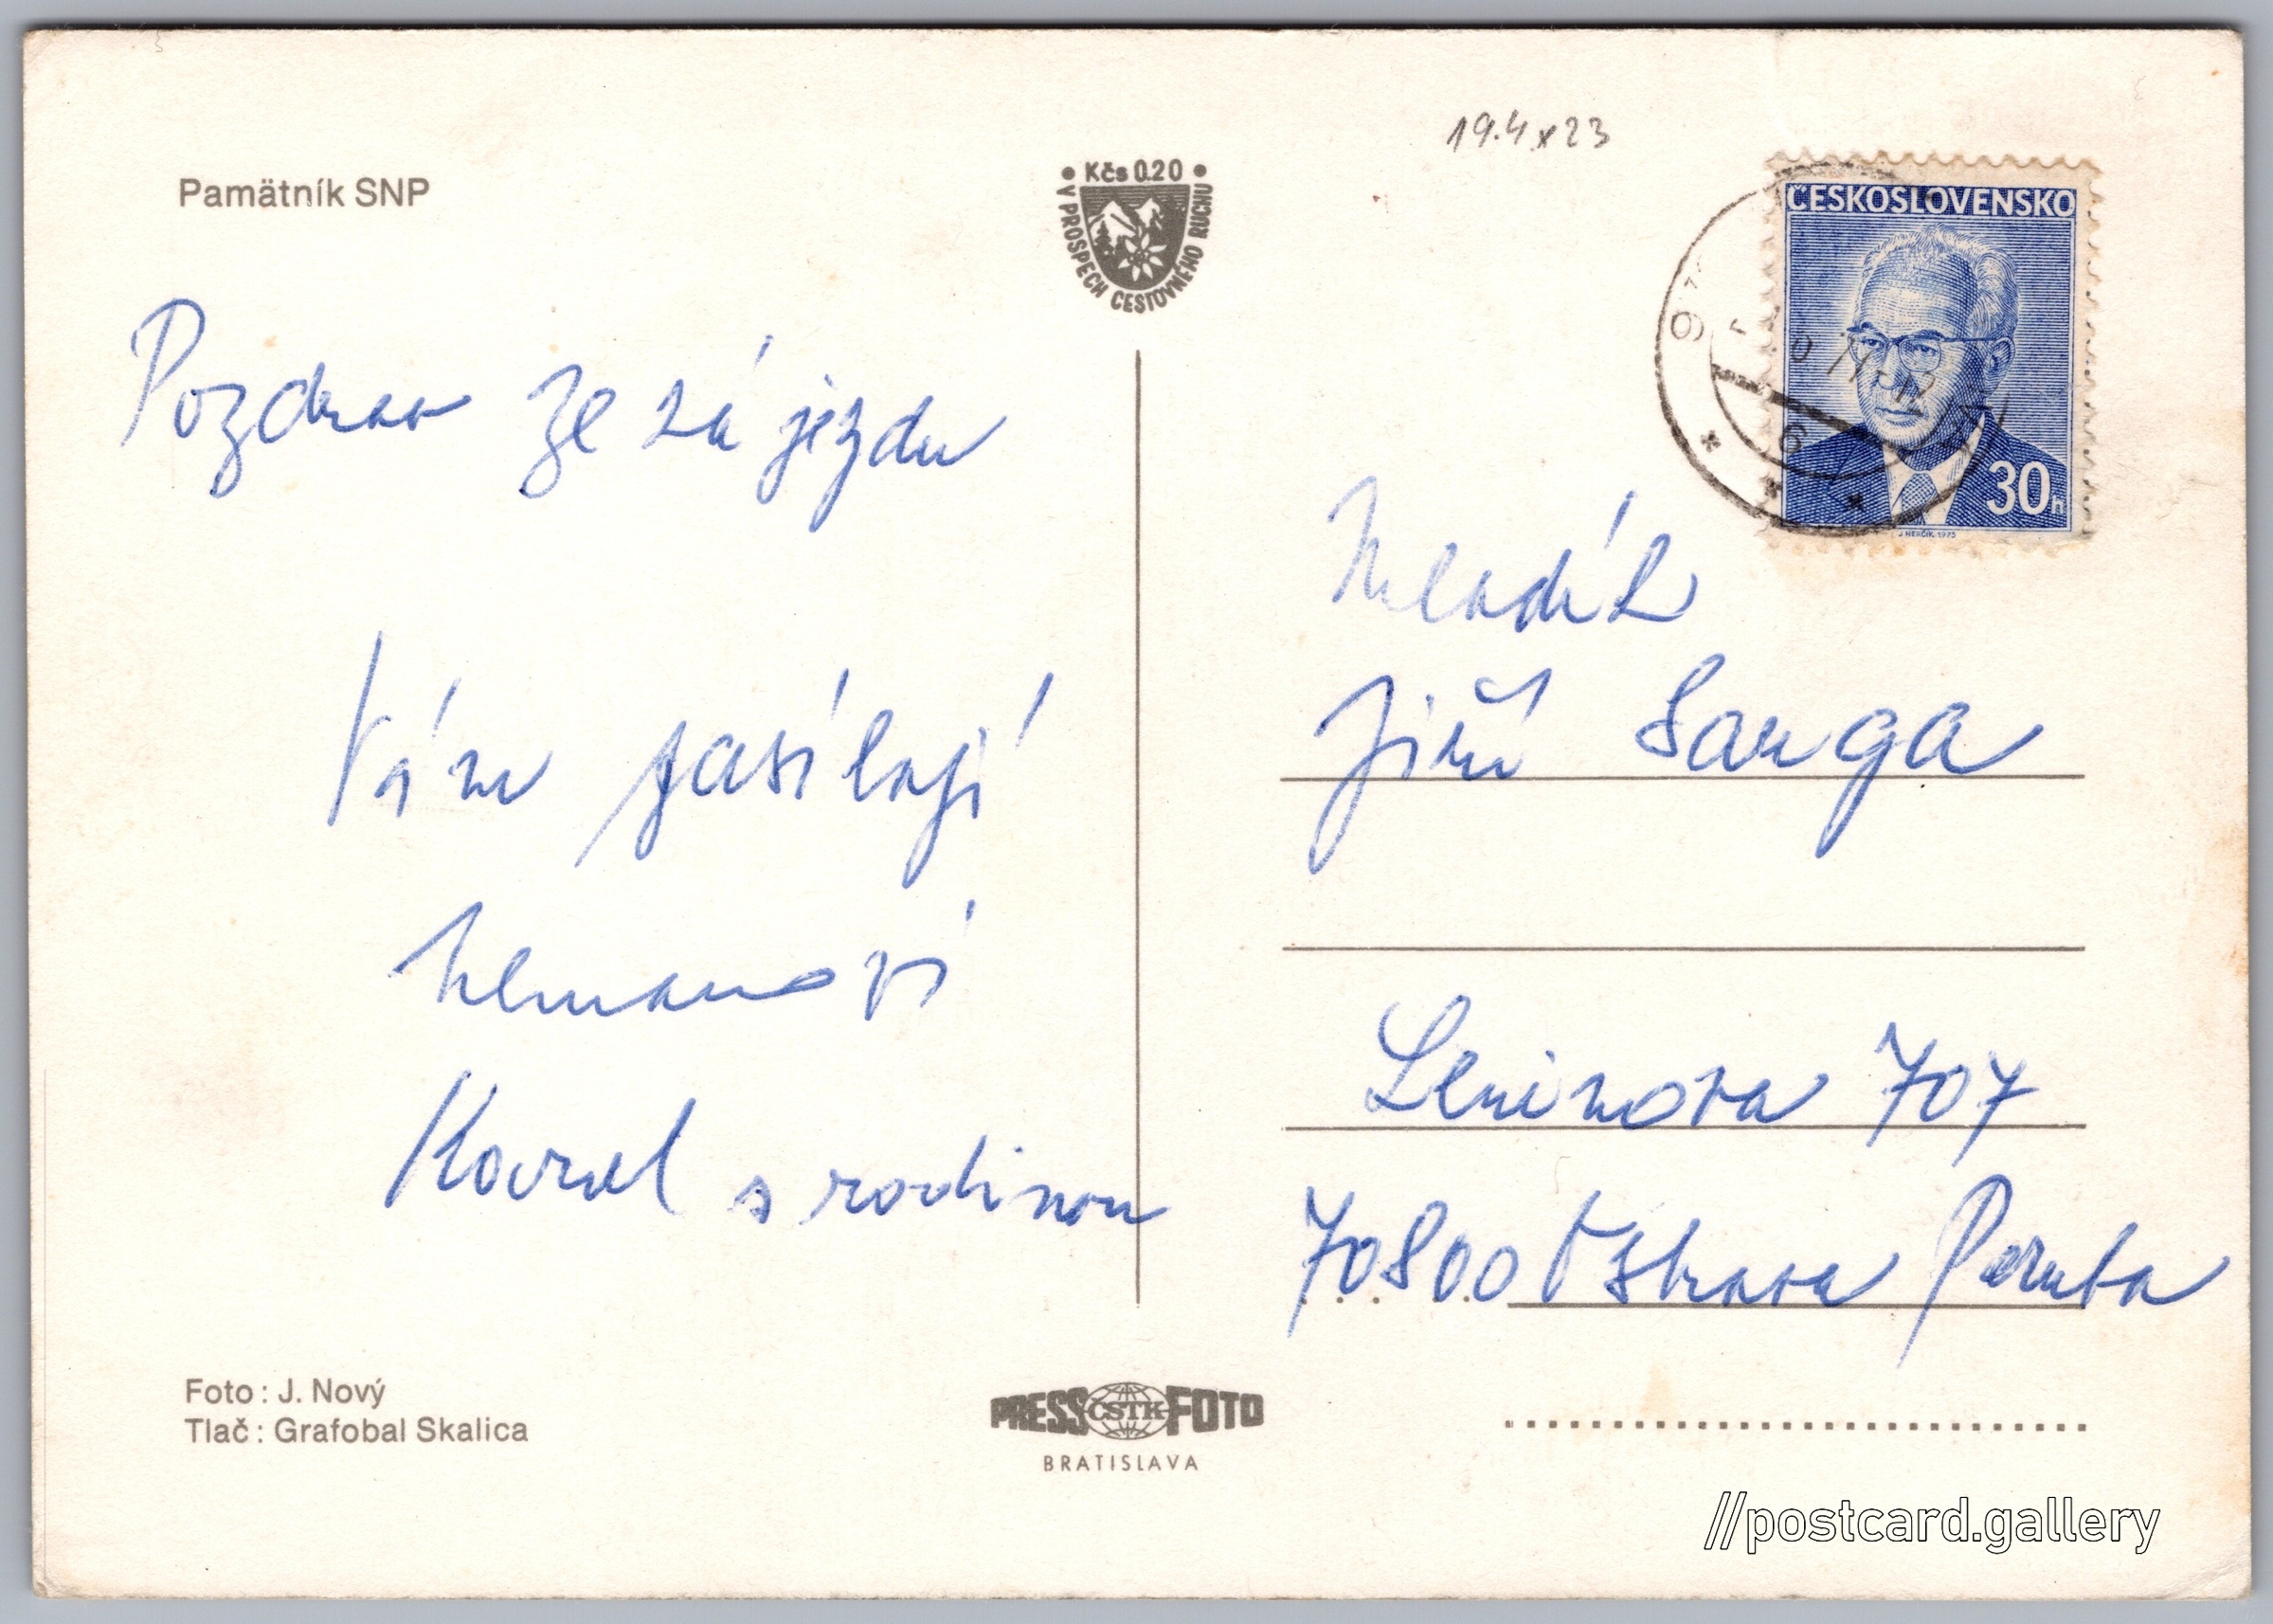 Pamätník SNP
• Kčs 0.20 •
V PROSPECH CESTOVNÉHO RUCHU
19.4 x 23
ČESKOSLOVENSKO
30h
J. HERČÍK 1975
Pozdrav ze zájezdu
Vám zasílají
Kovral s rodinou
Mladík
Jiří Sarga
Leninova 707
70800 Ostrava Poruba
Foto: J. Nový
Tlač: Grafobal Skalica
PRESS ČSTK FOTO
BRATISLAVA
//postcard.gallery